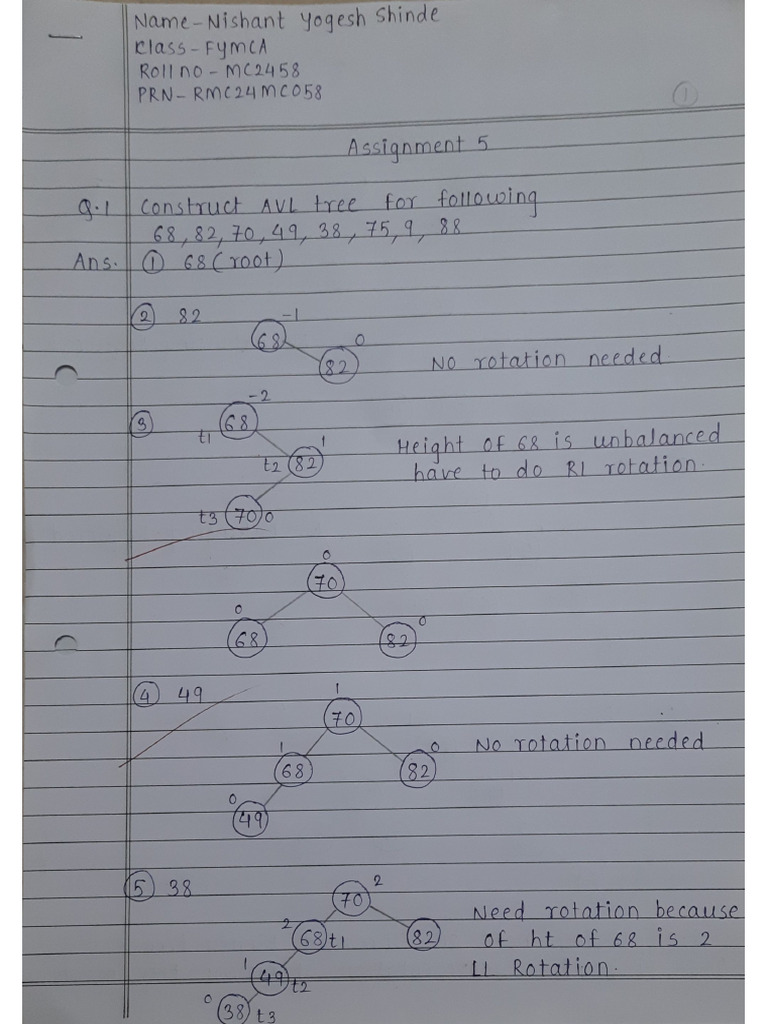 Name-Nishant Yogesh Shinde
Class-FYMCA
Roll no - MC2458
PRN- RMC24MC058
1
Assignment 5
Q.1 Construct AVL tree for following
68, 82, 70, 49, 38, 75, 9, 88
Ans. ① 68 (root)
② 82
-1
68
0
82
No rotation needed
③
-2
68
t1
1
t2 82
t3 70 0
Height of 68 is unbalanced
have to do Rl rotation.
0
70
0
68
0
82
④ 49
1
70
1
68
0
82
0
49
No rotation needed
⑤ 38
70 2
2 68 t1
82
1 49 t2
0 38 t3
Need rotation because
of ht of 68 is 2
Ll Rotation.